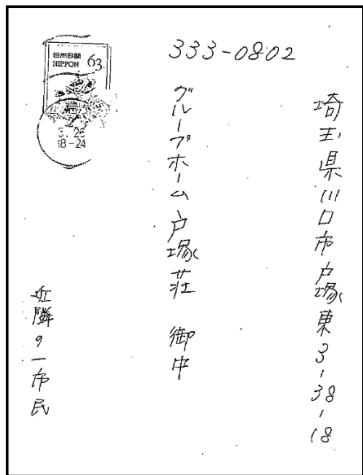 日本郵便
NIPPON 63
3. 25
18-24
333-0802
埼玉県川口市戸塚東3-38-18
グループホーム戸塚荘 御中
近隣の一市民